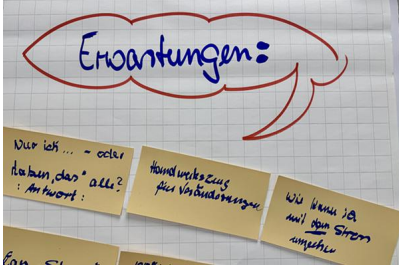 Erwartungen:
Nur ich... - oder
Haben "das" alle?
: Antwort:
Handwerkszeug
für Veränderungen
Wie kann ich
mit dem Stress
umgehen